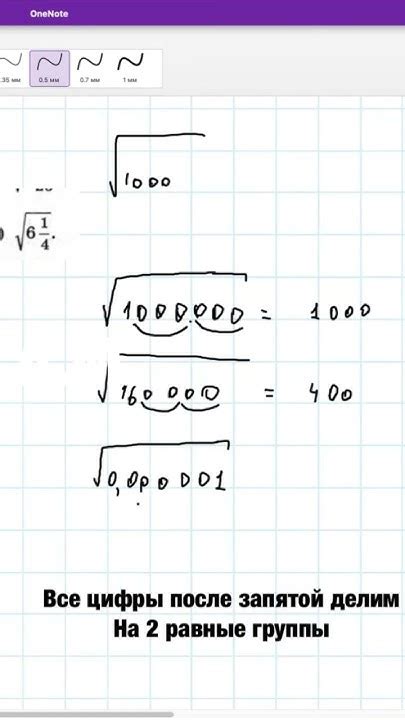 OneNote
0.35 мм 0.5 мм 0.7 мм 1 мм
√1000
√6 1/4.
√1000000 = 1000
√160 000 = 400
√0,000001
Все цифры после запятой делим
На 2 равные группы